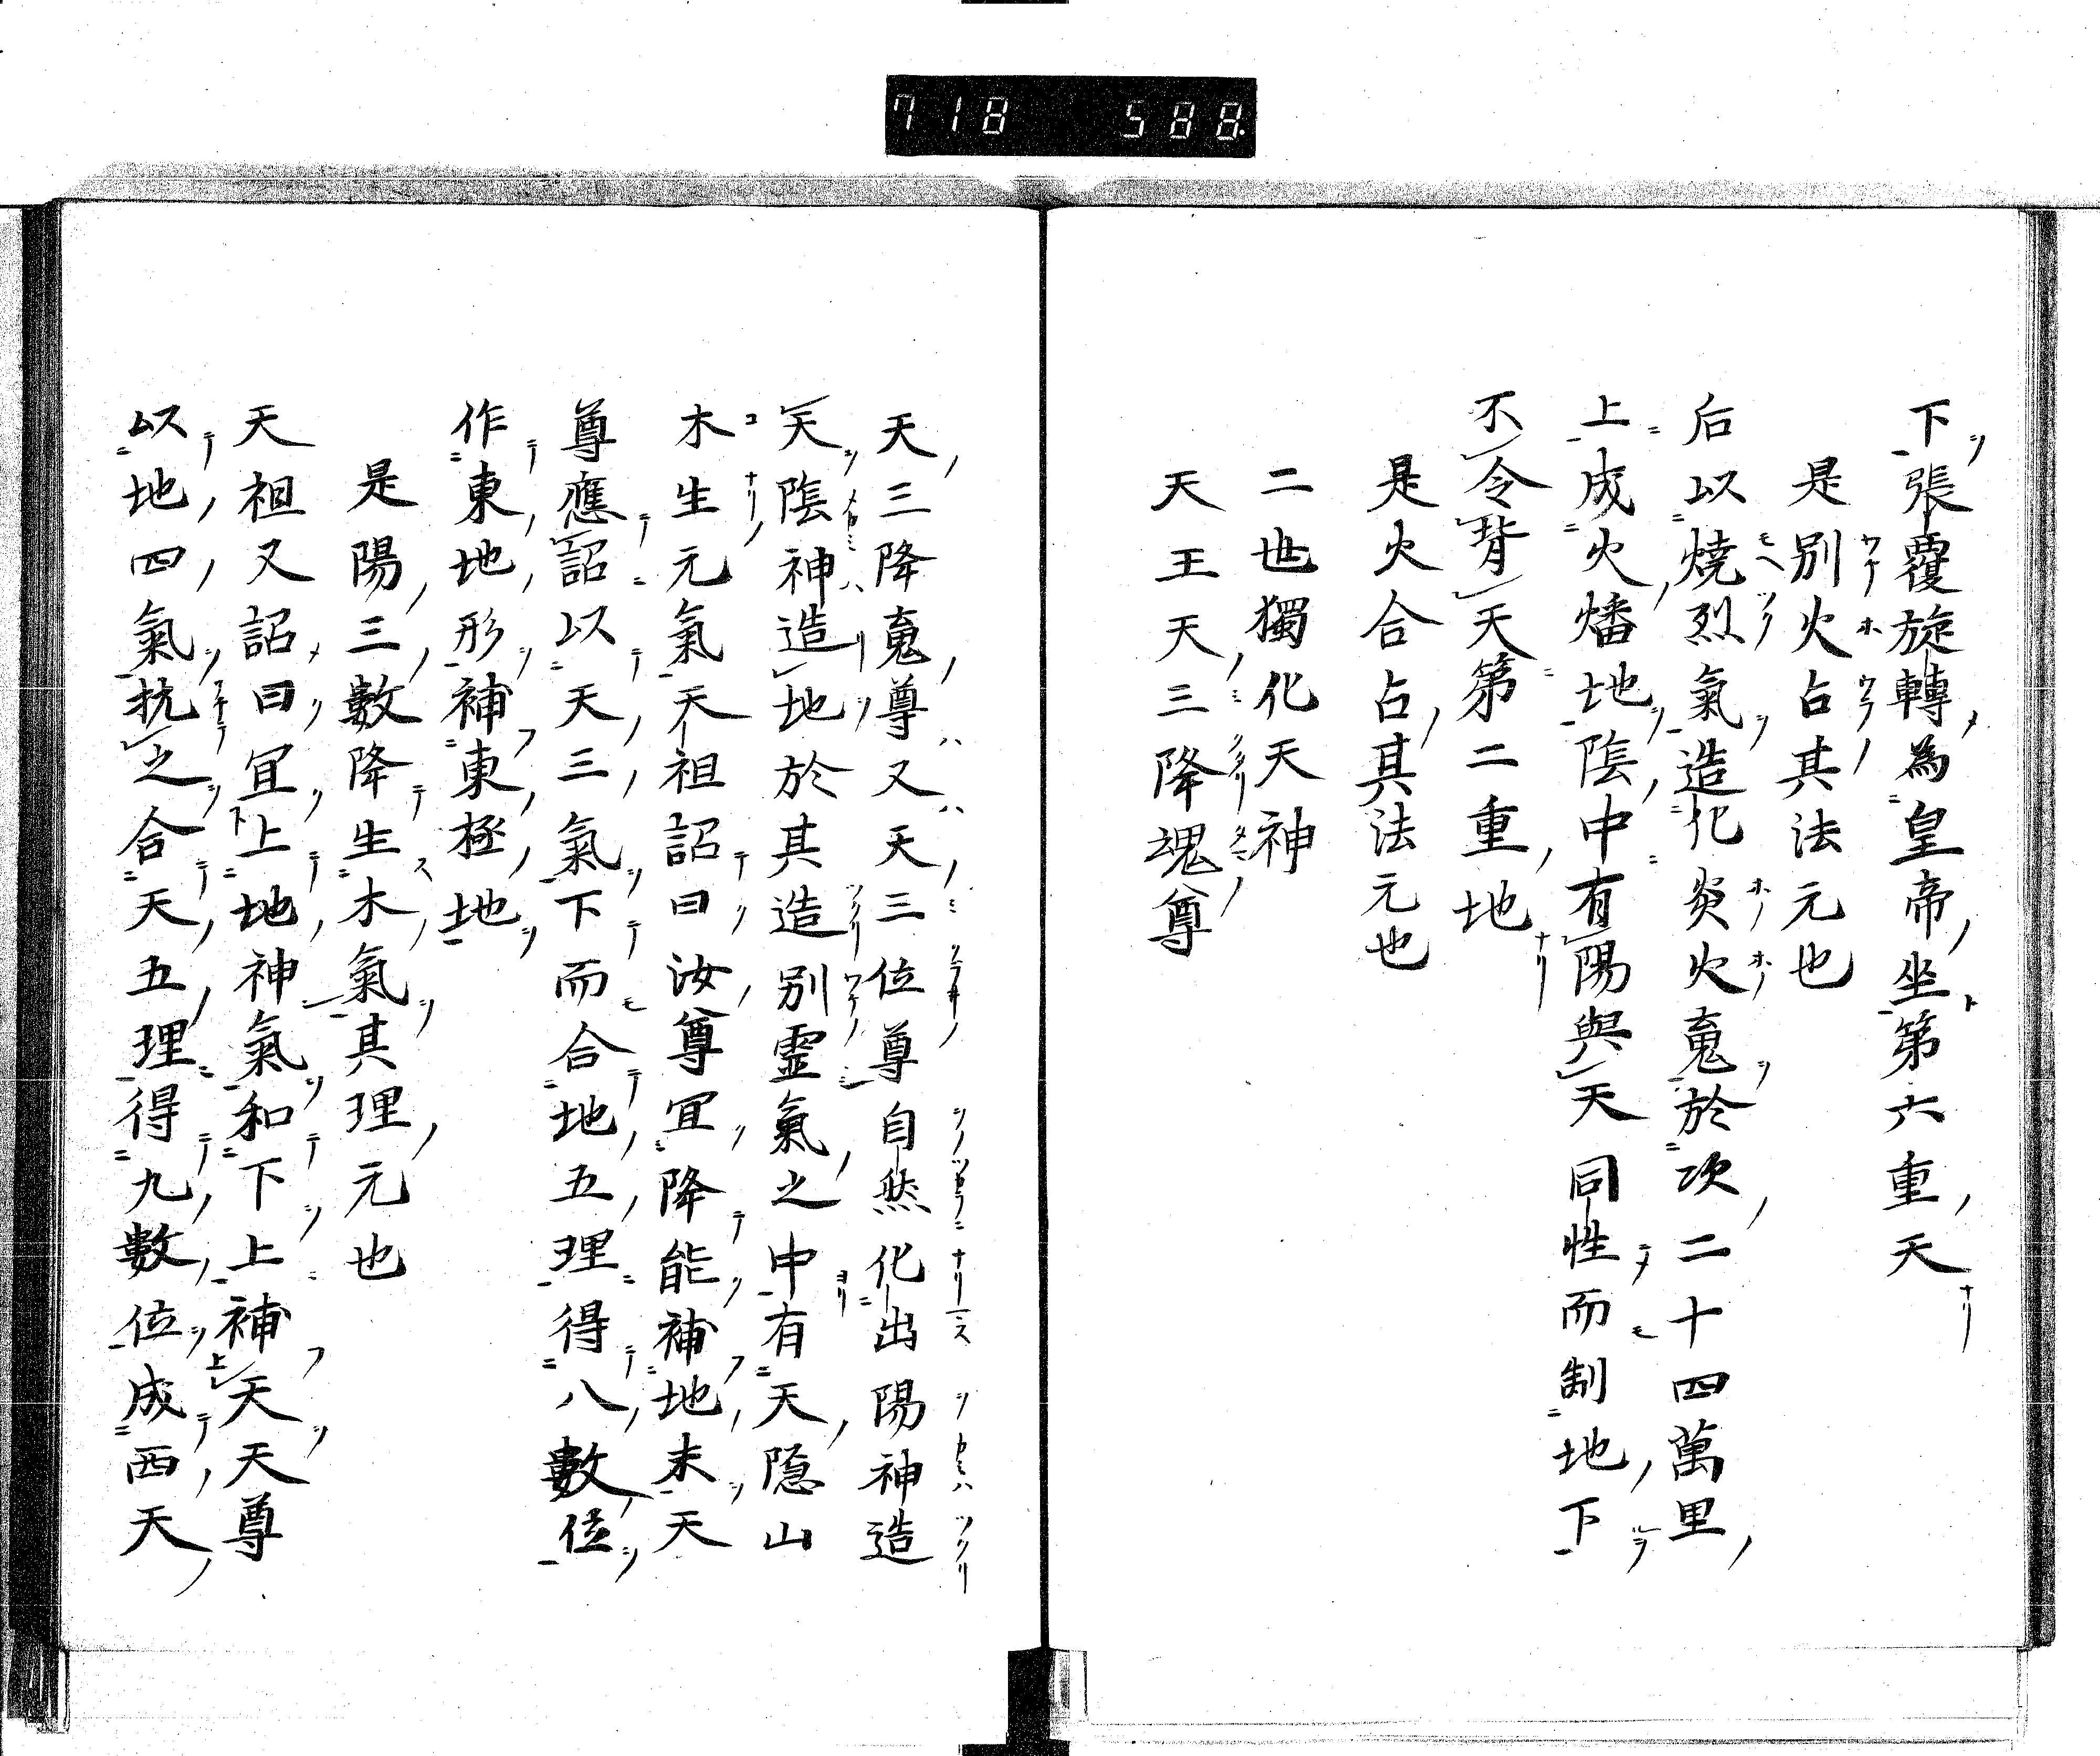 718 588
下張覆旋轉為皇帝坐第六重天
是別火占其法元也
后以燒烈氣造化炎火䰟於次二十四萬里
上成火燔地陰中有陽與天同性而制地下
不令背天第二重地
是火合占其法元也
二世獨化天神
天王天三降魂尊
天三降䰟尊又天三位尊自然化出陽神造
天陰神造地於其造別霊氣之中有天隠山
木生元氣天祖詔曰汝尊宜降能補地末天
尊應詔以天三氣下而合地五理得八數位
作東地形補東極地
是陽三數降生木氣其理元也
天祖又詔曰宜上地神氣和下上補天天尊
以地四氣抗之合天五理得九數位成西天